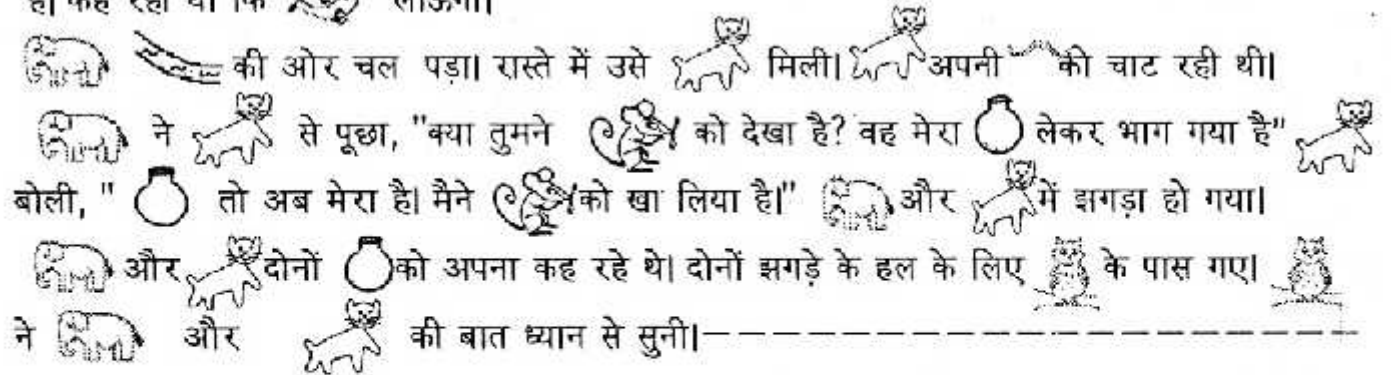 है। कह रहा था कि लाऊंगा।
की ओर चल पड़ा। रास्ते में उसे मिली। अपनी को चाट रही थी।
ने से पूछा, "क्या तुमने को देखा है? वह मेरा लेकर भाग गया है"
बोली, " तो अब मेरा है। मैने को खा लिया है।" और में झगड़ा हो गया।
और दोनों को अपना कह रहे थे। दोनों झगड़े के हल के लिए के पास गए।
ने और की बात ध्यान से सुनी।——————————————